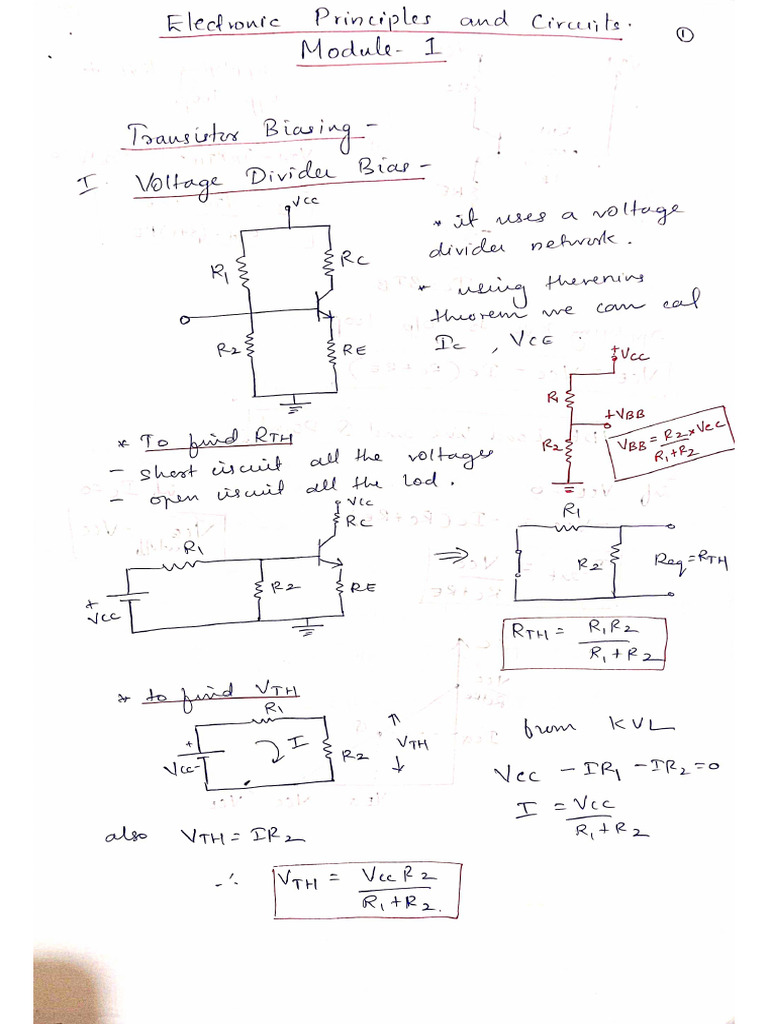 Electronic Principles and Circuits.
Module - I
1
Transistor Biasing -
I Voltage Divider Bias -
Vcc
R1
RC
R2
RE
* it uses a voltage
divider network.
* using thevenins
theorem we can cal
Ic , VCE .
+Vcc
R1
+VBB
R2
VBB = R2 × Vcc
R1+R2
* To find RTH
- short circuit all the voltages
- open circuit all the lod.
Vcc
RC
R1
R2
RE
+
Vcc
⇒
R1
R2
Req = RTH
RTH = R1R2
R1+R2
* to find VTH
R1
+
Vcc -
I
R2
VTH
from KVL
Vcc - IR1 - IR2 = 0
I = Vcc
R1+R2
also VTH = IR2
∴ VTH = Vcc R2
R1+R2.